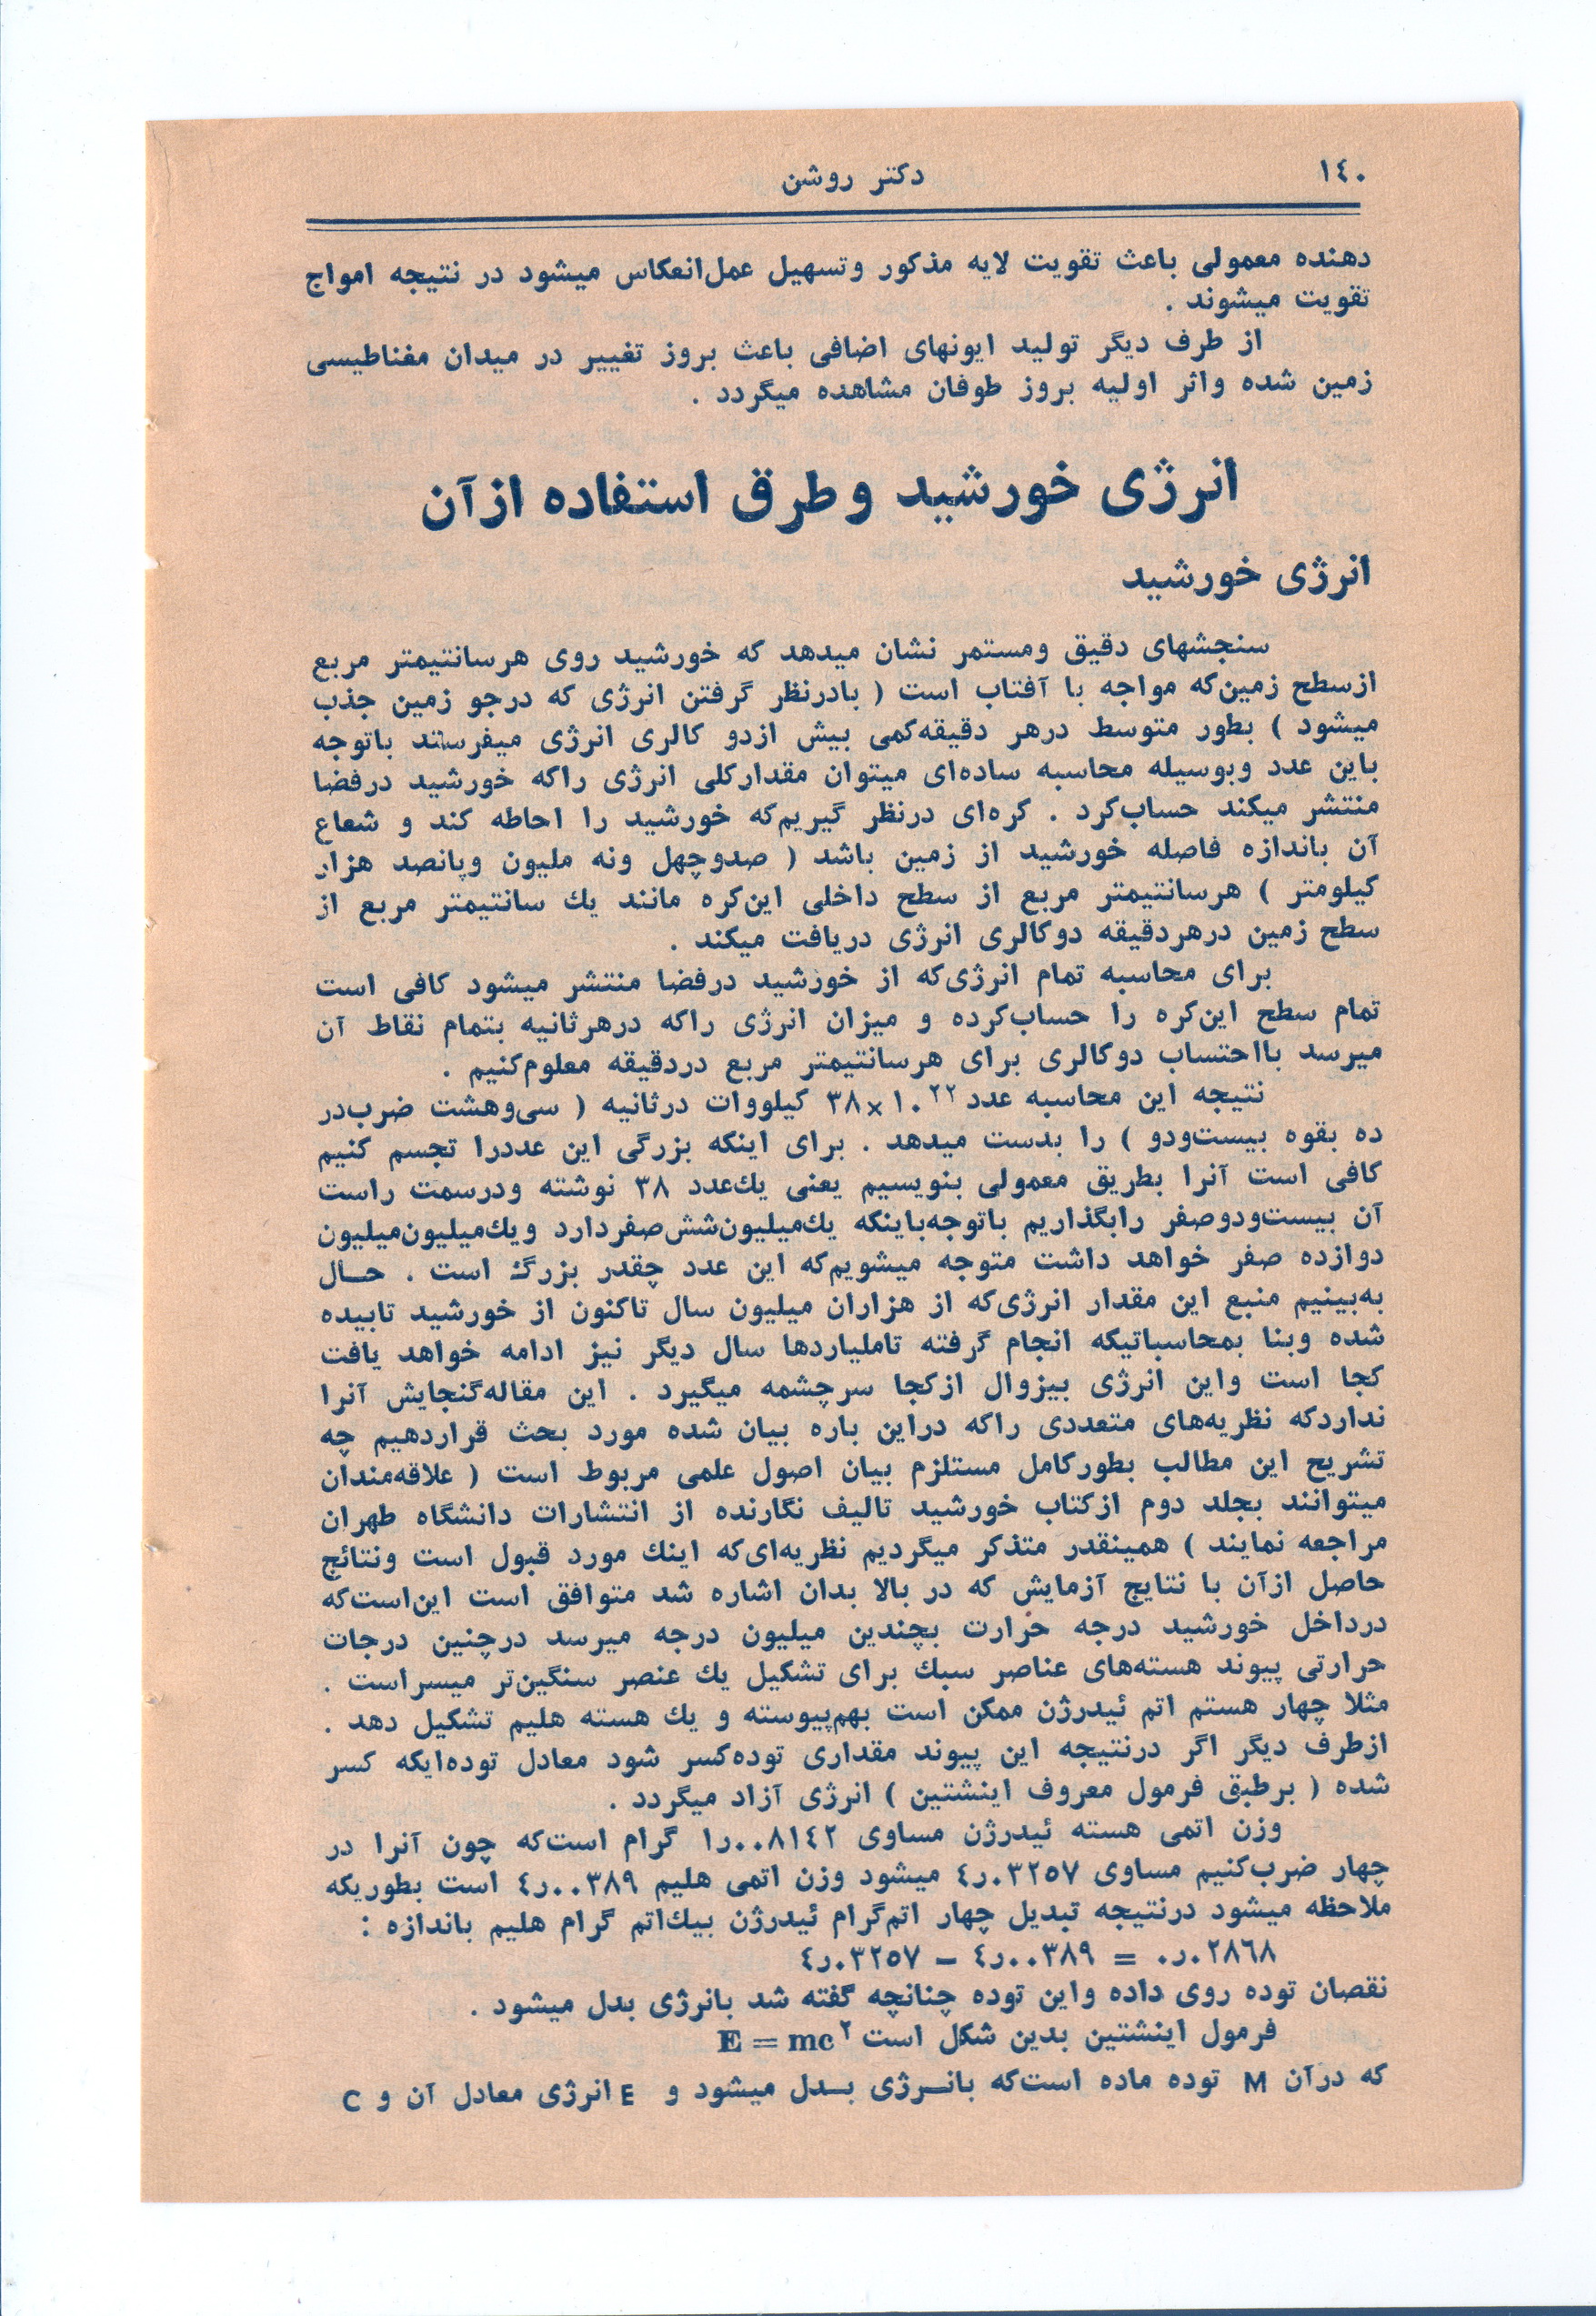 ۱٤۰
دکتر روشن
دهنده معمولی باعث تقویت لایه مذکور وتسهیل عمل‌انعکاس میشود در نتیجه امواج
تقویت میشوند .
از طرف دیگر تولید ایونهای اضافی باعث بروز تغییر در میدان مغناطیسی
زمین شده واثر اولیه بروز طوفان مشاهده میگردد .
انرژی خورشید و طرق استفاده ازآن
انرژی خورشید
سنجشهای دقیق ومستمر نشان میدهد که خورشید روی هرسانتیمتر مربع
ازسطح زمین‌که مواجه با آفتاب است ( بادرنظر گرفتن انرژی که درجو زمین جذب
میشود ) بطور متوسط درهر دقیقه‌کمی بیش ازدو کالری انرژی میفرستد باتوجه
باین عدد وبوسیله محاسبه ساده‌ای میتوان مقدارکلی انرژی راکه خورشید درفضا
منتشر میکند حساب‌کرد . کره‌ای درنظر گیریم‌که خورشید را احاطه کند و شعاع
آن باندازه فاصله خورشید از زمین باشد ( صدوچهل ونه ملیون وپانصد هزار
کیلومتر ) هرسانتیمتر مربع از سطح داخلی این‌کره مانند یك سانتیمتر مربع از
سطح زمین درهردقیقه دوکالری انرژی دریافت میکند .
برای محاسبه تمام انرژی‌که از خورشید درفضا منتشر میشود کافی است
تمام سطح این‌کره را حساب‌کرده و میزان انرژی راکه درهرثانیه بتمام نقاط آن
میرسد بااحتساب دوکالری برای هرسانتیمتر مربع دردقیقه معلوم‌کنیم .
نتیجه این محاسبه عدد ۳۸×۱۰²² کیلووات درثانیه ( سی‌وهشت ضرب‌در
ده بقوه بیست‌ودو ) را بدست میدهد . برای اینکه بزرگی این عددرا تجسم کنیم
کافی است آنرا بطریق معمولی بنویسیم یعنی یك‌عدد ۳۸ نوشته ودرسمت راست
آن بیست‌ودوصفر رابگذاریم باتوجه‌باینکه یك‌میلیون‌شش‌صفردارد ویك‌میلیون‌میلیون
دوازده صفر خواهد داشت متوجه میشویم‌که این عدد چقدر بزرگ است . حـال
به‌بینیم منبع این مقدار انرژی‌که از هزاران میلیون سال تاکنون از خورشید تابیده
شده وبنا بمحاسباتیکه انجام گرفته تاملیاردها سال دیگر نیز ادامه خواهد یافت
کجا است واین انرژی بیزوال ازکجا سرچشمه میگیرد . این مقاله‌گنجایش آنرا
نداردکه نظریه‌های متعددی راکه دراین باره بیان شده مورد بحث قراردهیم چه
تشریح این مطالب بطورکامل مستلزم بیان اصول علمی مربوط است ( علاقه‌مندان
میتوانند بجلد دوم ازکتاب خورشید تالیف نگارنده از انتشارات دانشگاه طهران
مراجعه نمایند ) همینقدر متذکر میگردیم نظریه‌ای‌که اینك مورد قبول است ونتائج
حاصل ازآن با نتایج آزمایش که در بالا بدان اشاره شد متوافق است این‌است‌که
درداخل خورشید درجه حرارت بچندین میلیون درجه میرسد درچنین درجات
حرارتی پیوند هسته‌های عناصر سبك برای تشکیل یك عنصر سنگین‌تر میسراست .
مثلا چهار هستم اتم ئیدرژن ممکن است بهم‌پیوسته و یك هسته هلیم تشکیل دهد .
ازطرف دیگر اگر درنتیجه این پیوند مقداری توده‌کسر شود معادل توده‌ایکه کسر
شده ( برطبق فرمول معروف اینشتین ) انرژی آزاد میگردد .
وزن اتمی هسته ئیدرژن مساوی ۱ر۰۰۸۱٤۲ گرام است‌که چون آنرا در
چهار ضرب‌کنیم مساوی ٤ر۰۳۲۵۷ میشود وزن اتمی هلیم ٤ر۰۰۳۸۹ است بطوریکه
ملاحظه میشود درنتیجه تبدیل چهار اتم‌گرام ئیدرژن بیك‌اتم گرام هلیم باندازه :
٤ر۰۳۲۵۷ – ٤ر۰۰۳۸۹ = ۰ر۰۲۸٦۸
نقصان توده روی داده واین توده چنانچه گفته شد بانرژی بدل میشود .
فرمول اینشتین بدین شکل است E = mc²
که درآن M توده ماده است‌که بانـرژی بـدل میشود و E انرژی معادل آن و C